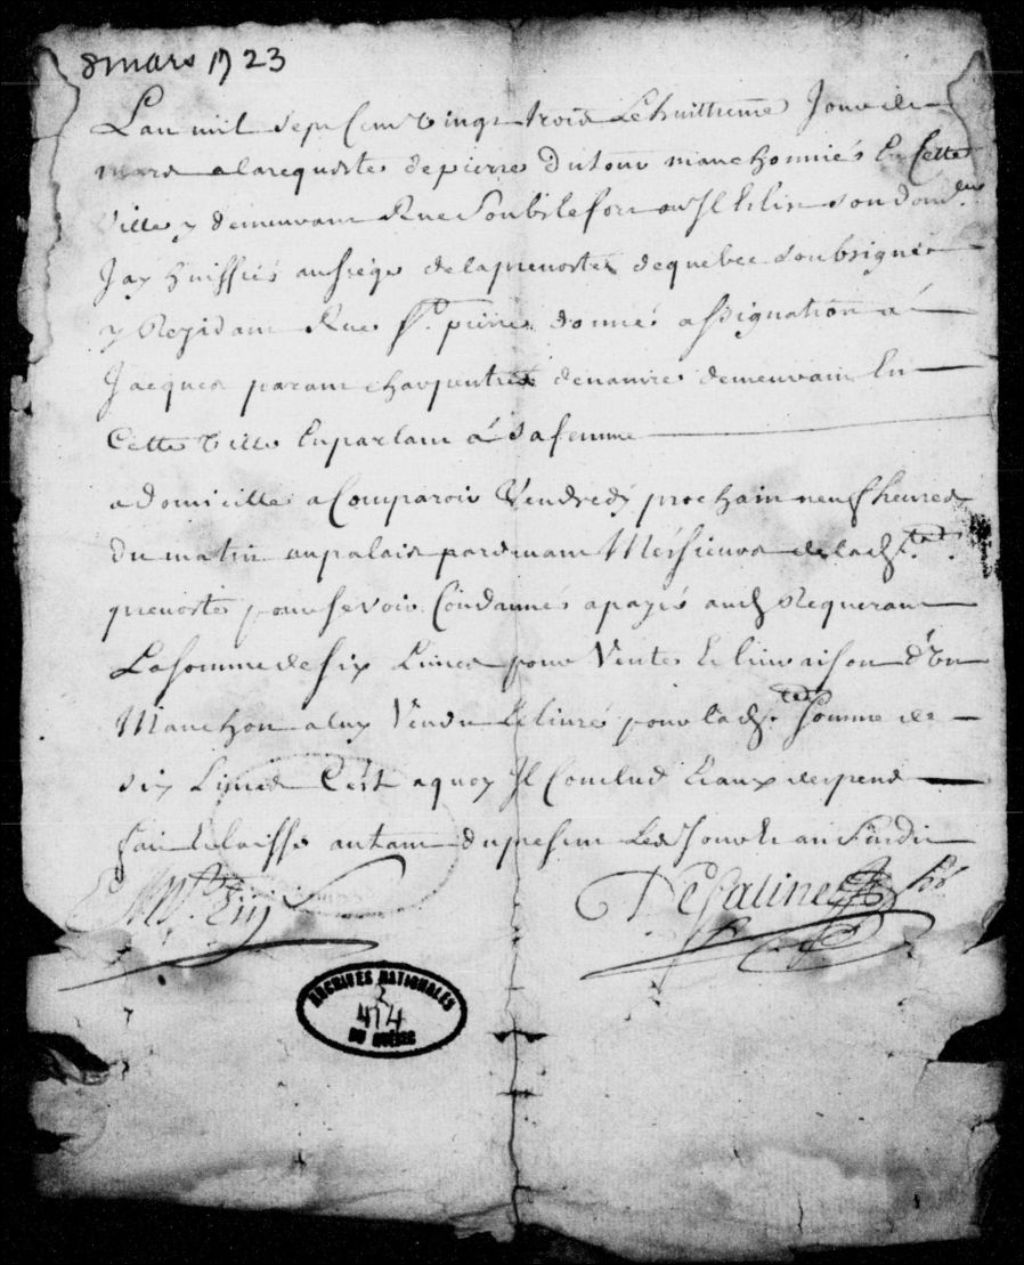 8 mars 1723
Lan mil sept Cent vingt trois Le huittieme Jour de
mars a la requeste de pierre Dutour manchonnié En Cette
Ville y demeurant Rue Soubs le fort ou Il Elist son dom.le
Jay huissiés au siege de la prevosté de quebec soubsigné
y Residant Rue St. pierre donné assignation a
Jacques parant charpentié de navire demeurant En
Cette Ville En parlant a sa femme
a domicille a Comparoir Vendredy prochain neuf heures
du matin au palais pardevant Messieurs de lad.
prevosté pour se voir Condamnés a payés aud Requerant
La somme de six Livres pour Vente Et livraison d'Un
Manchon a luy Vendu Et livré pour lad. somme de
six Livres C'est a quoy Il Conclud Et aux despend
fait Et laissé autant du present Lesd Jour Et an susdit
DeSalines
ARCHIVES NATIONALES
2
414
DU QUÉBEC